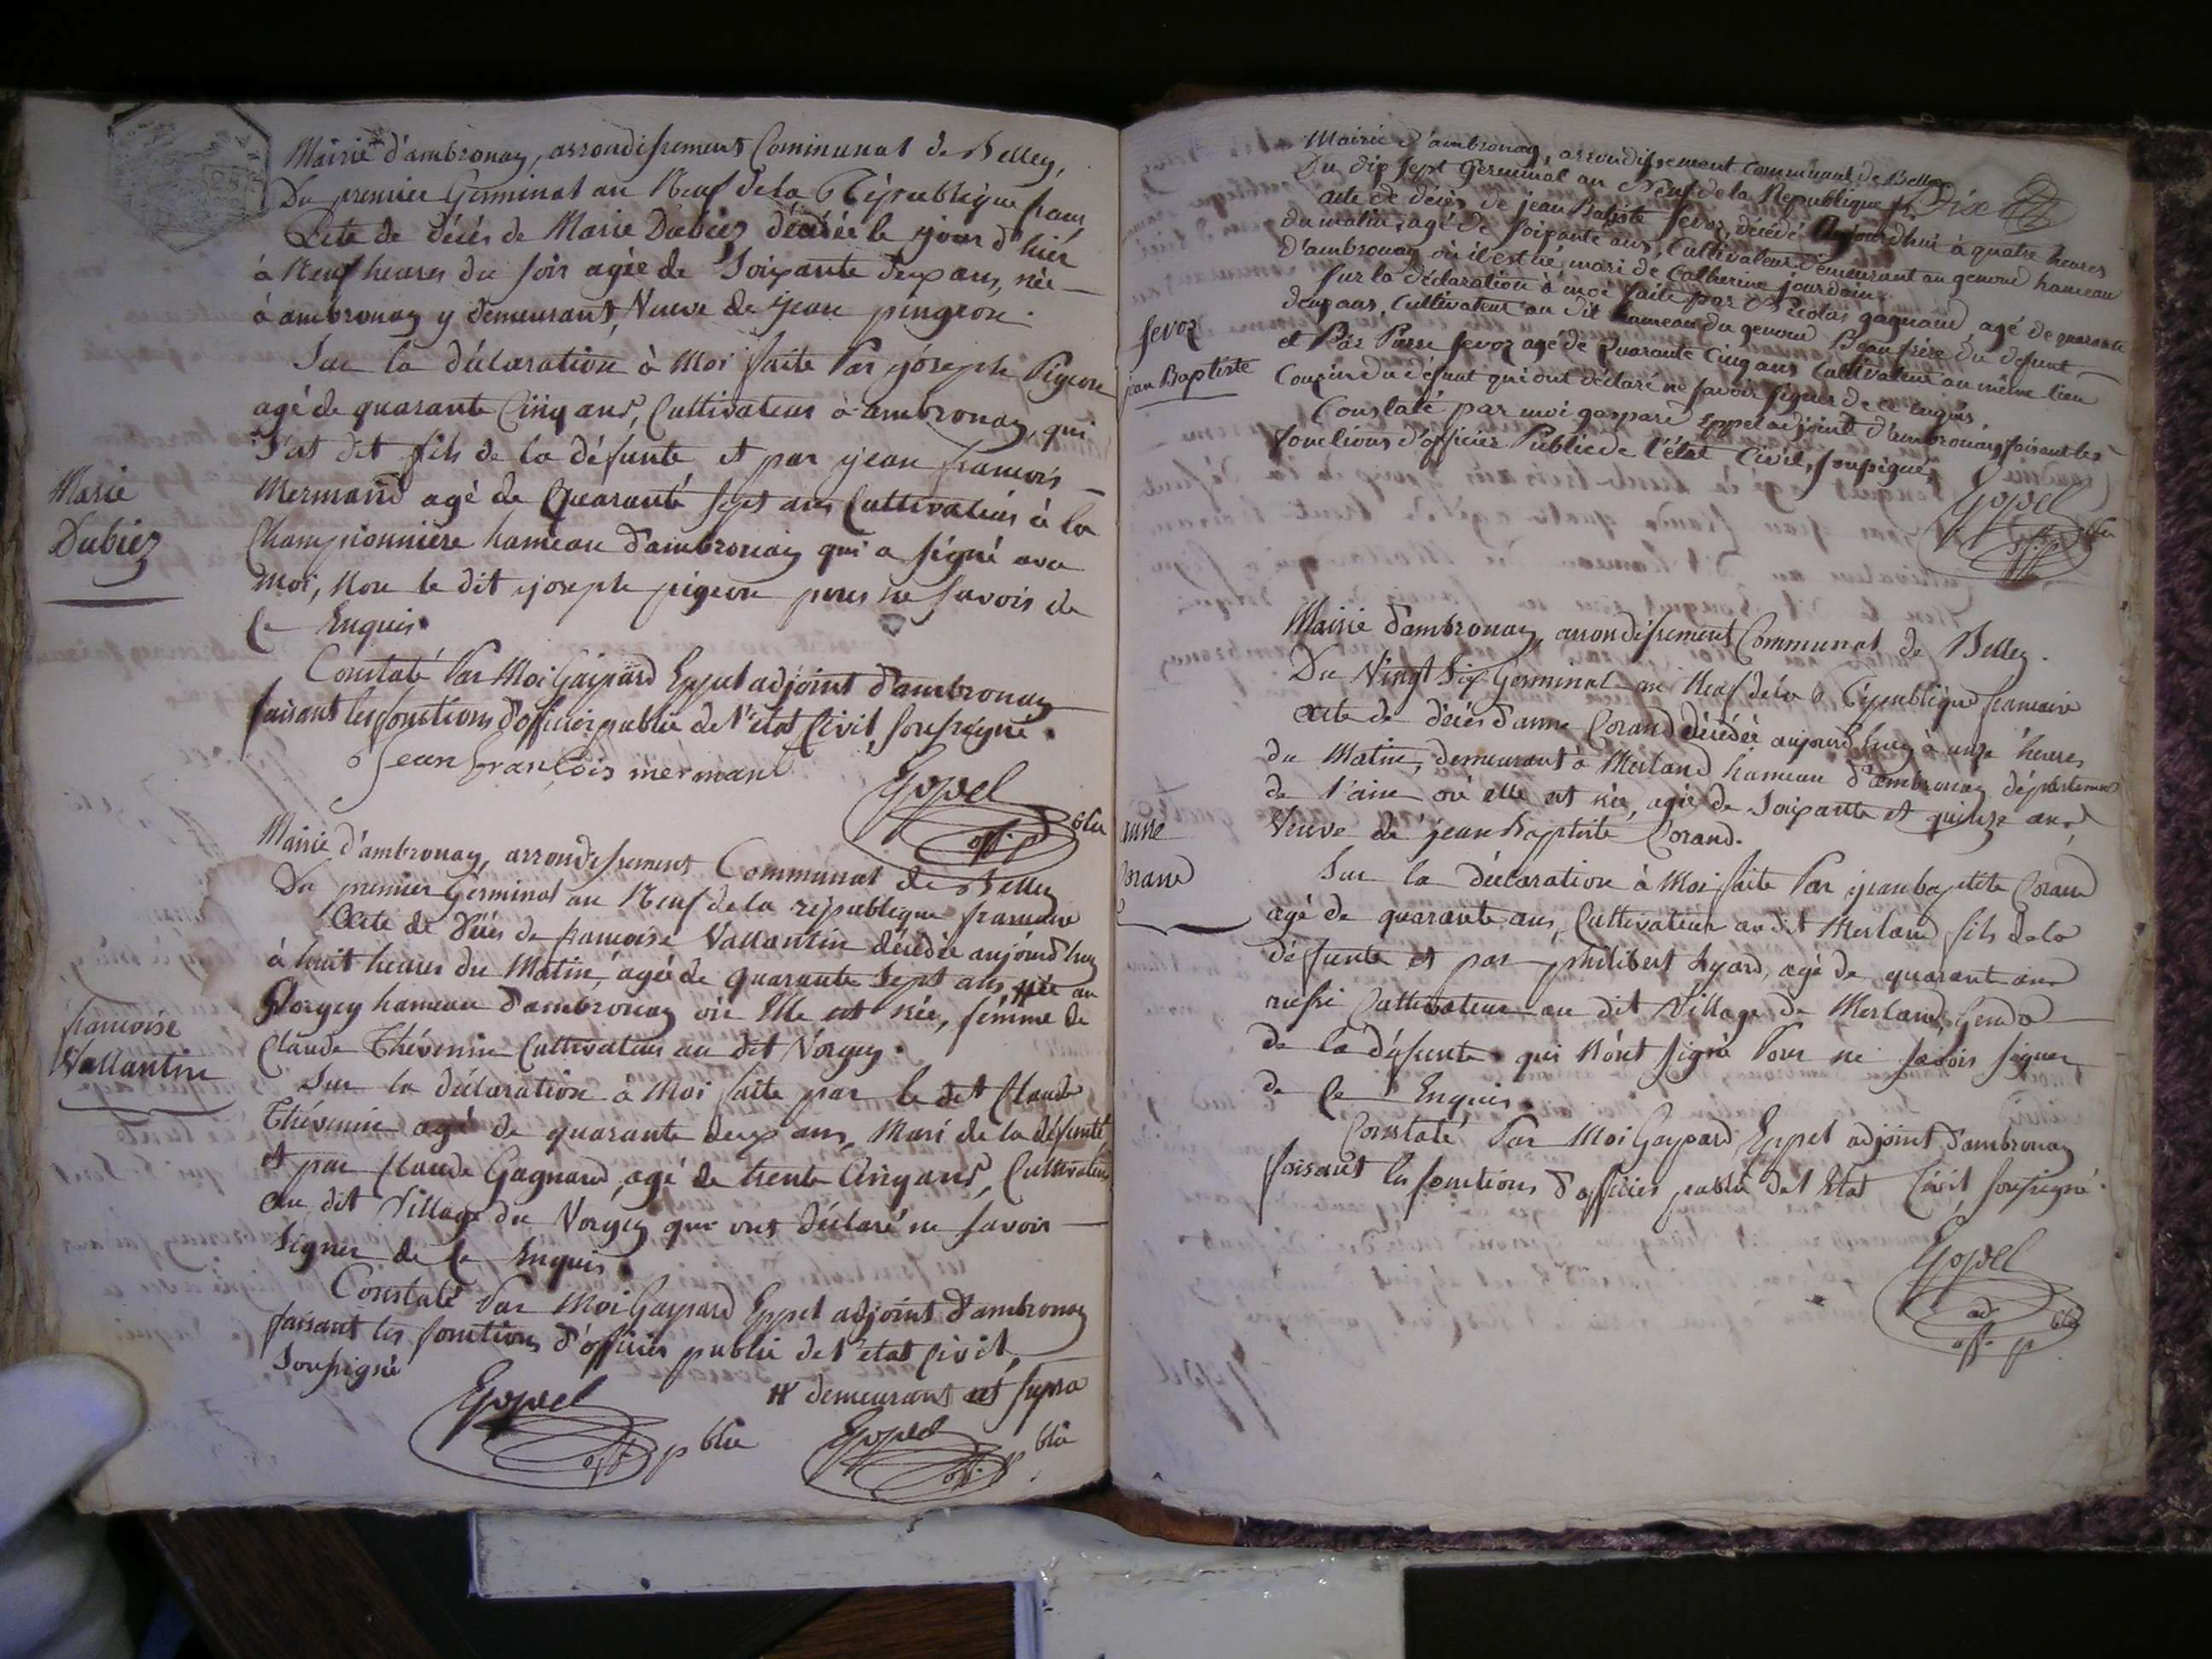 Mairie d'ambronay, arrondissement Communal de Belley,
Du premier Germinal an Neuf de la République franç
Acte de décès de Marie Dubiez décédée le jour d'hier
à Neuf heures du soir agée de Soixante deux ans, née
à ambronay y demeurant, Veuve de jean pingeon.
Sur la déclaration à Moi faite Par joseph Pigeon
agé de quarante Cinq ans, Cultivateur à ambronay, qui
s'est dit fils de la défunte et par jean francois
Mermand agé de Quarante sept ans Cultivateur à la
Championniere hameau d'ambronay qui a signé avec
Moi, Non le dit joseph pigeon pour ne savoir de
Ce Enquis.
Constaté Par Moi Gaspard Eppel adjoint d'ambronay
faisant les fonctions d'officier public de l'état Civil soussigné.
Jean François mermant
Eppel
off. p blic
Marie
Dubiez
Mairie d'ambronay, arrondissement Communal de Belley
Du premier Germinal an Neuf de la république francaise
Acte de Décès de francoise Vallantin décédée aujourd'huy
à huit heures du Matin, agée de quarante sept ans # au
Vorgey hameau d'ambronay où Elle est née, femme de
Claude Thévenin Cultivateur au dit Vorgey.
Sur la déclaration à Moi faite par le dit Claude
Thévenin agé de quarante deux ans, Mari de la défunte
et par Claude Gagnard, agé de trente Cinq ans, Cultivateur
au dit Village du Vorgey qui ont déclaré ne savoir
Signer de Ce Enquis.
Constaté Par Moi Gaspard Eppel adjoint d'ambronay
faisant les fonctions d'officier public de l'état Civil
Soussigné
# demeurant ut supra
Eppel
off. p blic
Eppel
off. p blic
francoise
Vallantin
Mairie d'ambronay, arrondissement communal de Belley
Dix
Du dix sept Germinal an Neuf de la Republique f
acte de décès de jean Batiste fevoz, décédé Aujourdhui à quatre heures
du matin, agé de soixante ans, Cultivateur, demeurant au genoud hameau
D'ambronay où il est né mari de Catherine jourdain.
sur la déclaration à moi faite par Nicolas gagnaud, agé de quarante
deux ans, Cultivateur au dit hameau du genoud Beau frère du defunt
et Par Pierre fevoz agé de Quarante Cinq ans Cultivateur au même lieu
Cousin du défunt qui ont déclaré ne savoir signer de ce enquis.
Constaté par moi gaspard Eppel adjoint d'ambronay faisant les
fonctions d'officier Public de l'état Civil, soussigné,
Eppel
off. p blic
fevoz
jean Baptiste
Mairie d'ambronay, arrondissement Communal de Belley.
Du Vingt Six Germinal an Neuf de la République francaise
Acte de décès d'anne Corand décédée aujourd'huy à onze heures
du Matin, demeurant à Merland hameau d'ambronay département
de l'ain où elle est née, agée de Soixante et quinze ans
Veuve de jean Baptiste Corand.
Sur la déclaration à Moi faite Par jean baptiste Corand
agé de quarante ans, Cultivateur au dit Merland fils de la
défunte et par philibert hyard, agé de quarante ans
aussi Cultivateur au dit Village de Merland, Gendre
de la défunte qui N'ont signé Pour ne savoir signer
de Ce Enquis.
Constaté Par Moi Gaspard Eppel adjoint d'ambronay
faisant les fonctions d'officier public de l'Etat Civil soussigné.
Eppel
ad
off. p blic
anne
Corand